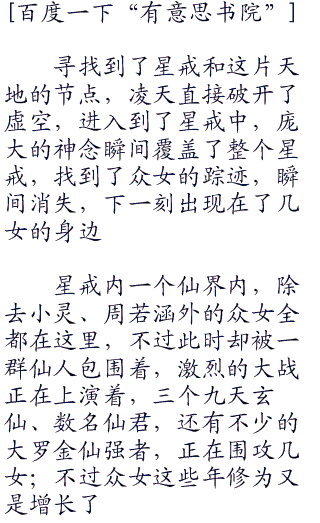 [百度一下“有意思书院”]
寻找到了星戒和这片天
地的节点，凌天直接破开了
虚空，进入到了星戒中，庞
大的神念瞬间覆盖了整个星
戒，找到了众女的踪迹，瞬
间消失，下一刻出现在了几
女的身边
星戒内一个仙界内，除
去小灵、周若涵外的众女全
都在这里，不过此时却被一
群仙人包围着，激烈的大战
正在上演着，三个九天玄
仙、数名仙君，还有不少的
大罗金仙强者，正在围攻几
女；不过众女这些年修为又
是增长了